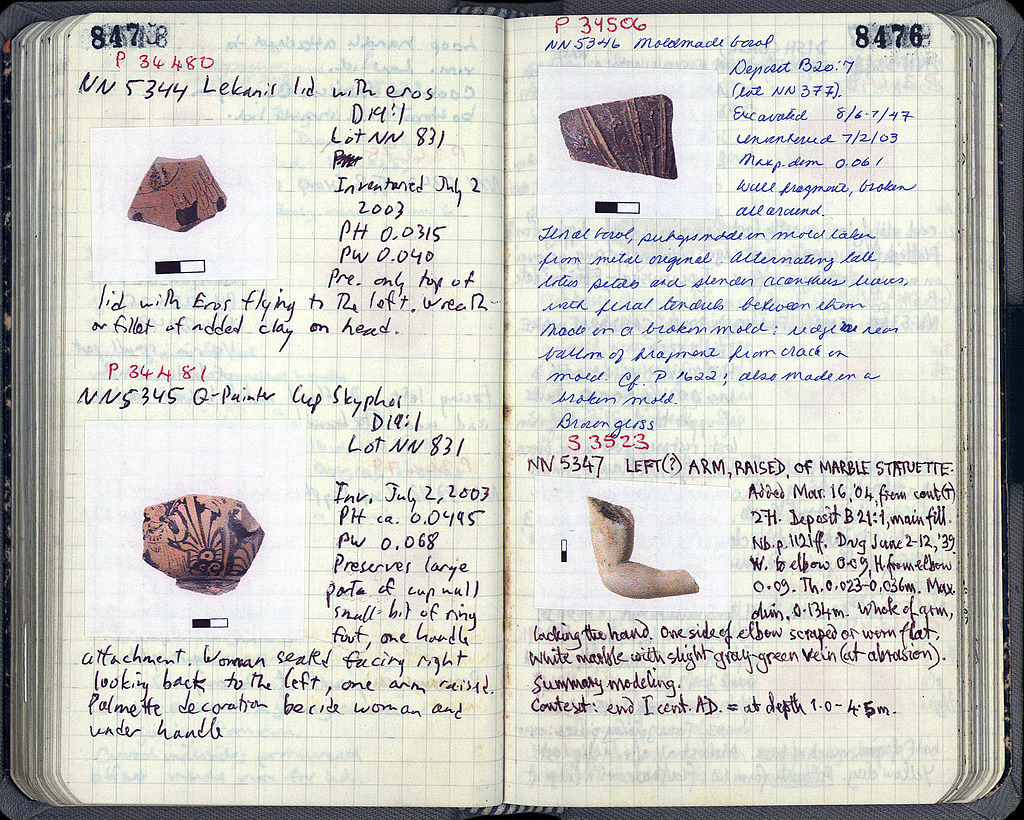 8478
P 34480
NN 5344 Lekanis lid with eros
D19:1
Lot NN 831
Inventoried July 2
2003
PH 0.0315
PW 0.040
Pre. only top of
lid with Eros flying to the left. Wreath
or fillet of added clay on head.
P 34481
NN5345 Q-Painter Cup Skyphos
D19:1
Lot NN 831
Inv. July 2, 2003
PH ca. 0.0495
PW 0.068
Preserves large
parts of cup wall
small bit of ring
foot, one handle
attachment. Woman seated facing right
looking back to the left, one arm raised.
Palmette decoration beside woman and
under handle
8476
P 34506
NN 5346 Moldmade bowl
Deposit B20:7
(lot NN 377).
Excavated 8/6-7/47
inventoried 7/2/03
Max p. dim 0.061
Wall fragment, broken
all around.
Floral bowl, perhaps made in mold taken
from metal original. Alternating tall
lotus petals and slender acanthus leaves,
with floral tendrils between them
Made in a broken mold: ridge near
bottom of fragment from crack in
mold. Cf. P 1622; also made in a
broken mold.
Brown gloss
S 3523
NN 5347 LEFT(?) ARM, RAISED, OF MARBLE STATUETTE.
Added Mar. 16, '04, from cont(r)
27. Deposit B21:1, main fill.
Nb. p. 1121ff. Drug June 2-12, '39.
W. to elbow 0.09, H. from elbow
0.09. Th. 0.023-0.036m. Max.
dim. 0.134m. Whole of arm,
lacking the hand. One side of elbow scraped or worn flat.
White marble with slight gray-green vein (at abrasion).
Summary modeling.
Context: end I cent. AD. = at depth 1.0-4.5m.